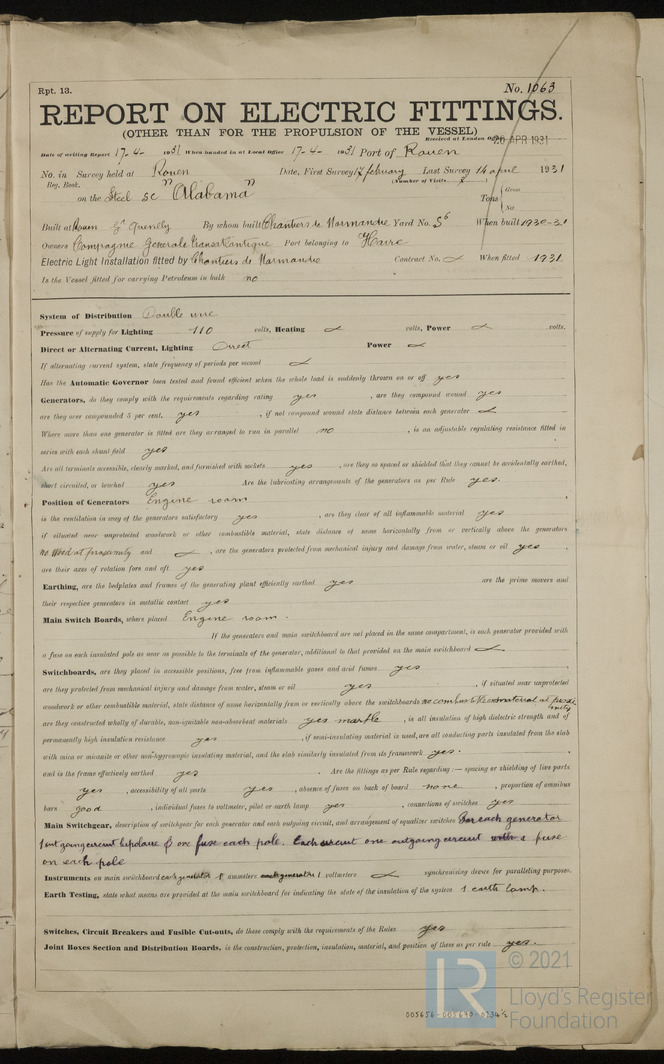 Rpt. 13.
No. 1063
REPORT ON ELECTRIC FITTINGS.
(OTHER THAN FOR THE PROPULSION OF THE VESSEL)
Received at London Office 20 APR 1931
Date of writing Report 17-4- 1931 When handed in at Local Office 17-4- 1931 Port of Rouen
No. in Survey held at Rouen Date, First Survey 17 february Last Survey 14 april 1931
Reg. Book. (Number of Visits )
on the Steel sc "Alabama" Tons { Gross Net
Built at Rouen Gd Quevilly By whom built Chantiers de Normandie Yard No. S6 When built 1930-31
Owners Compagnie Generale Transatlantique Port belonging to Havre
Electric Light Installation fitted by Chantiers de Normandie Contract No. When fitted 1931
Is the Vessel fitted for carrying Petroleum in bulk no
System of Distribution Double wire
Pressure of supply for Lighting 110 volts, Heating volts, Power volts.
Direct or Alternating Current, Lighting Direct Power
If alternating current system, state frequency of periods per second
Has the Automatic Governor been tested and found efficient when the whole load is suddenly thrown on or off yes
Generators, do they comply with the requirements regarding rating yes , are they compound wound yes
are they over compounded 5 per cent. yes , if not compound wound state distance between each generator
Where more than one generator is fitted are they arranged to run in parallel no , is an adjustable regulating resistance fitted in
series with each shunt field yes
Are all terminals accessible, clearly marked, and furnished with sockets yes , are they so spaced or shielded that they cannot be accidentally earthed,
short circuited, or touched yes Are the lubricating arrangements of the generators as per Rule yes.
Position of Generators Engine room
is the ventilation in way of the generators satisfactory yes , are they clear of all inflammable material yes
if situated near unprotected woodwork or other combustible material, state distance of same horizontally from or vertically above the generators
no wood at proximity and , are the generators protected from mechanical injury and damage from water, steam or oil yes ,
are their axes of rotation fore and aft yes
Earthing, are the bedplates and frames of the generating plant efficiently earthed yes are the prime movers and
their respective generators in metallic contact yes
Main Switch Boards, where placed Engine room.
If the generators and main switchboard are not placed in the same compartment, is each generator provided with
a fuse on each insulated pole as near as possible to the terminals of the generator, additional to that provided on the main switchboard
Switchboards, are they placed in accessible positions, free from inflammable gases and acid fumes yes
are they protected from mechanical injury and damage from water, steam or oil yes , if situated near unprotected
woodwork or other combustible material, state distance of same horizontally from or vertically above the switchboards no combustible material at proximity
are they constructed wholly of durable, non-ignitable non-absorbent materials yes marble , is all insulation of high dielectric strength and of
permanently high insulation resistance yes , if semi-insulating material is used, are all conducting parts insulated from the slab
with mica or micanite or other non-hygroscopic insulating material, and the slab similarly insulated from its framework yes.
and is the frame effectively earthed yes Are the fittings as per Rule regarding:— spacing or shielding of live parts
yes , accessibility of all parts yes , absence of fuses on back of board none , proportion of omnibus
bars good , individual fuses to voltmeter, pilot or earth lamp yes , connections of switches yes
Main Switchgear, description of switchgear for each generator and each outgoing circuit, and arrangement of equalizer switches For each generator
1 outgoing circuit bipolare & one fuse each pole. Each circuit one outgoing circuit with 1 fuse
on each pole
Instruments on main switchboard each generator 1 ammeters each generator 1 voltmeters synchronising device for paralleling purposes.
Earth Testing, state what means are provided at the main switchboard for indicating the state of the insulation of the system 1 earth lamp.
Switches, Circuit Breakers and Fusible Cut-outs, do these comply with the requirements of the Rules yes
Joint Boxes Section and Distribution Boards, is the construction, protection, insulation, material, and position of these as per rule yes.
LR © 2021
Lloyd's Register
Foundation